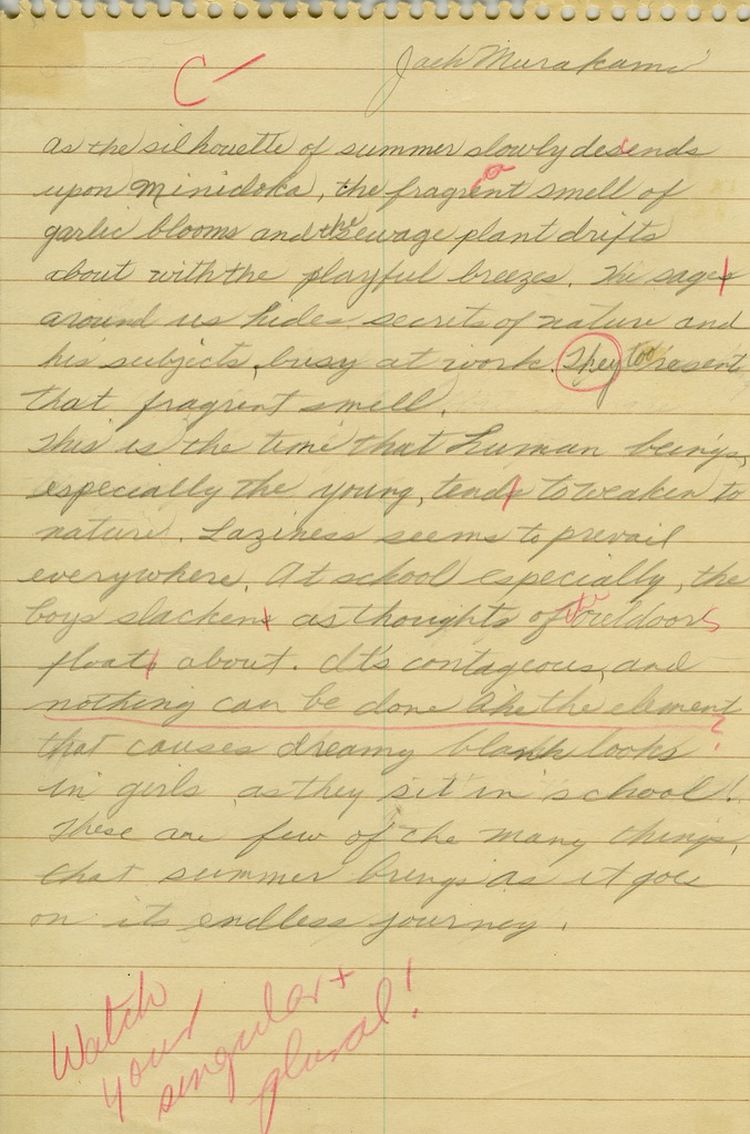 C-
Jack Murakami
As the silhouette of summer slowly desends
upon Minidoka, the fragrent smell of
a
garlic blooms and the sewage plant drifts
about with the playful breezes. The sages
around us hides secrets of nature and
his subjects, busy at work. They too resent
that fragrent smell.
This is the time that human beings,
especially the young, tends to weaken to
nature. Laziness seems to prevail
everywhere. At school especially, the
boys slackens as thoughts of the outdoors
floats about. It's contageous, and
nothing can be done like the element
?
that causes dreamy blank looks
in girls as they sit in school!
These are few of the many things,
that summer brings as it goes
on its endless journey.
Watch
your
singular +
plural!